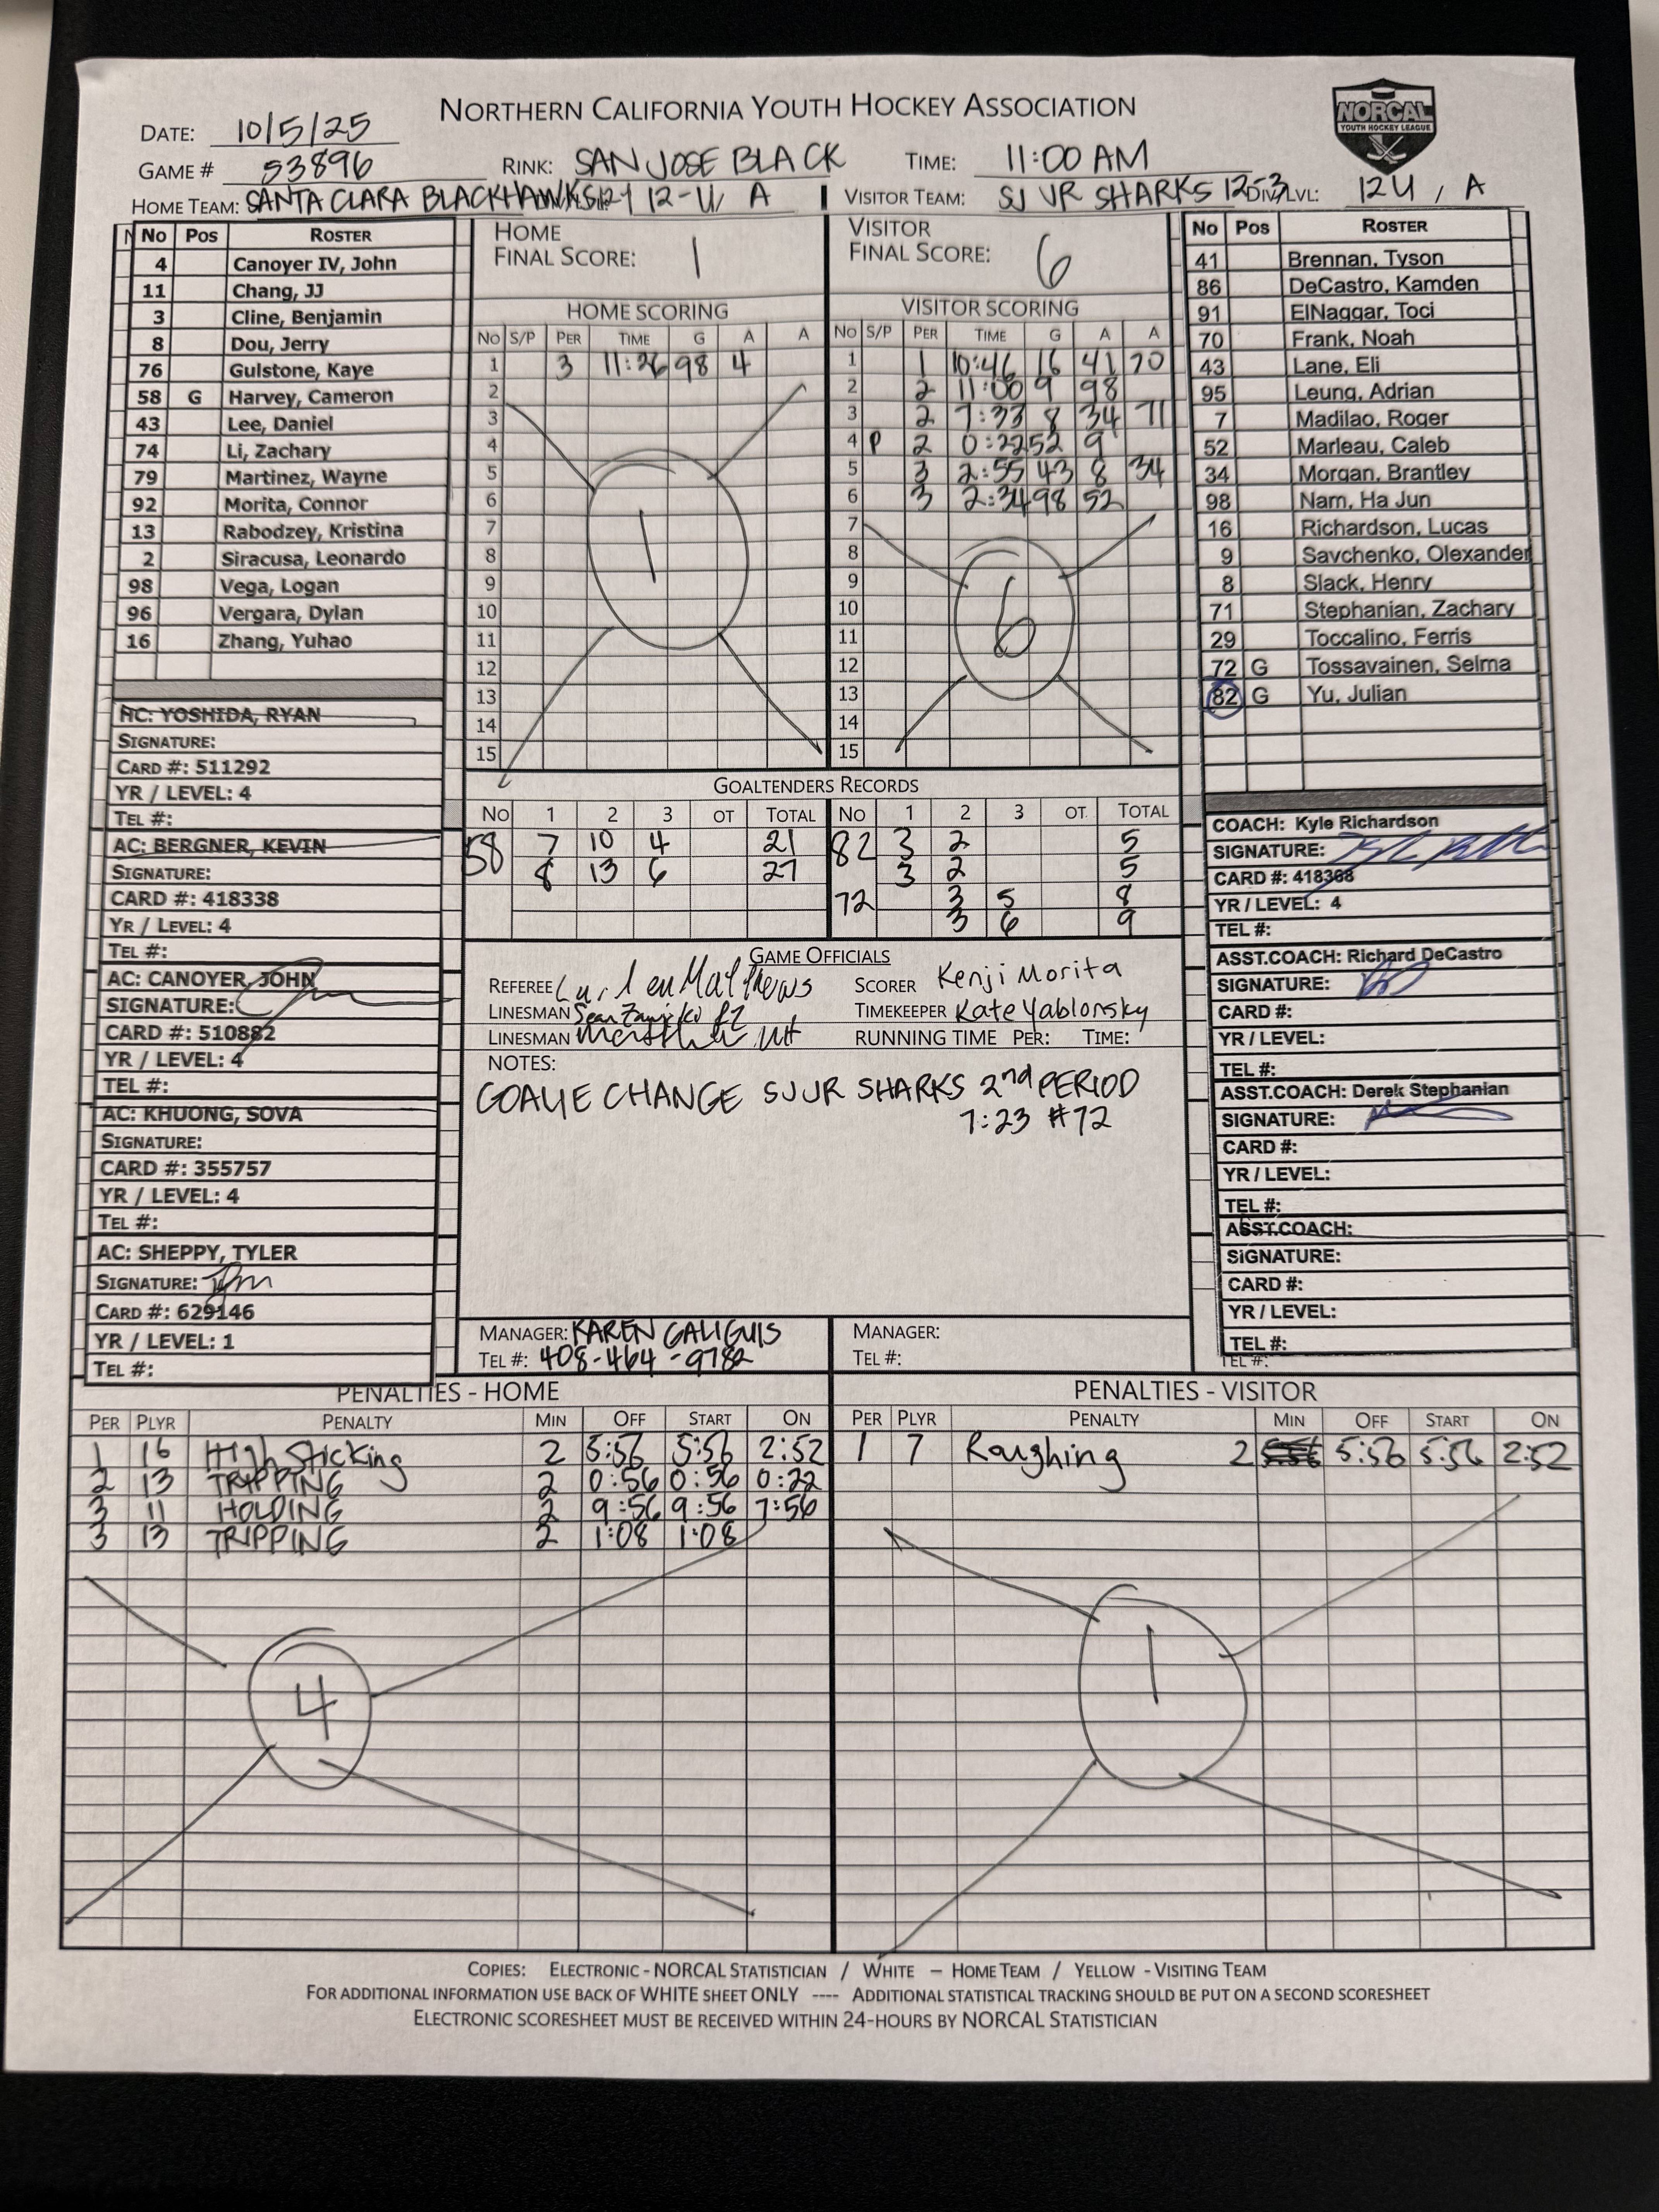 NORTHERN CALIFORNIA YOUTH HOCKEY ASSOCIATION
NORCAL
YOUTH HOCKEY LEAGUE
DATE: 10/5/25
GAME # 53896 RINK: SAN JOSE BLACK TIME: 11:00 AM
HOME TEAM: SANTA CLARA BLACKHAWKS 12-U, A VISITOR TEAM: SJ JR SHARKS 12-3 DIV/LVL: 12U, A
No Pos ROSTER
4 Canoyer IV, John
11 Chang, JJ
3 Cline, Benjamin
8 Dou, Jerry
76 Gulstone, Kaye
58 G Harvey, Cameron
43 Lee, Daniel
74 Li, Zachary
79 Martinez, Wayne
92 Morita, Connor
13 Rabodzey, Kristina
2 Siracusa, Leonardo
98 Vega, Logan
96 Vergara, Dylan
16 Zhang, Yuhao
HC: YOSHIDA, RYAN
SIGNATURE:
CARD #: 511292
YR / LEVEL: 4
TEL #:
AC: BERGNER, KEVIN
SIGNATURE:
CARD #: 418338
YR / LEVEL: 4
TEL #:
AC: CANOYER, JOHN
SIGNATURE:
CARD #: 510882
YR / LEVEL: 4
TEL #:
AC: KHUONG, SOVA
SIGNATURE:
CARD #: 355757
YR / LEVEL: 4
TEL #:
AC: SHEPPY, TYLER
SIGNATURE:
CARD #: 629146
YR / LEVEL: 1
TEL #:
HOME
FINAL SCORE: 1
HOME SCORING
NO S/P PER TIME G A A
1 3 11:26 98 4
2
3
4
5
6
7
8
9
10
11
12
13
14
15
1
VISITOR
FINAL SCORE: 6
VISITOR SCORING
NO S/P PER TIME G A A
1 1 10:46 16 41 70
2 2 11:00 9 98
3 2 7:33 8 34 71
4 P 2 0:22 52 9
5 3 2:55 43 8 34
6 3 2:34 98 52
7
8
9
10
11
12
13
14
15
6
GOALTENDERS RECORDS
NO 1 2 3 OT TOTAL NO 1 2 3 OT TOTAL
58 7 10 4 21 82 3 2 5
8 13 6 27 3 2 5
72 3 5 8
3 6 9
GAME OFFICIALS
REFEREE Matthews SCORER Kenji Morita
LINESMAN Sean TIMEKEEPER Kate Yablonsky
LINESMAN RUNNING TIME PER: TIME:
NOTES:
GOALIE CHANGE SJ JR SHARKS 2nd PERIOD
7:23 #72
MANAGER: KAREN GALIGUIS MANAGER:
TEL #: 408-464-9782 TEL #:
No Pos ROSTER
41 Brennan, Tyson
86 DeCastro, Kamden
91 ElNaggar, Toci
70 Frank, Noah
43 Lane, Eli
95 Leung, Adrian
7 Madilao, Roger
52 Marleau, Caleb
34 Morgan, Brantley
98 Nam, Ha Jun
16 Richardson, Lucas
9 Savchenko, Olexander
8 Slack, Henry
71 Stephanian, Zachary
29 Toccalino, Ferris
72 G Tossavainen, Selma
82 G Yu, Julian
COACH: Kyle Richardson
SIGNATURE:
CARD #: 418368
YR / LEVEL: 4
TEL #:
ASST.COACH: Richard DeCastro
SIGNATURE:
CARD #:
YR / LEVEL:
TEL #:
ASST.COACH: Derek Stephanian
SIGNATURE:
CARD #:
YR / LEVEL:
TEL #:
ASST.COACH:
SIGNATURE:
CARD #:
YR / LEVEL:
TEL #:
TEL #:
PENALTIES - HOME
PER PLYR PENALTY MIN OFF START ON
1 16 High Sticking 2 5:56 5:56 2:52
2 13 TRIPPING 2 0:56 0:56 0:22
3 11 HOLDING 2 9:56 9:56 7:56
3 13 TRIPPING 2 1:08 1:08
4
PENALTIES - VISITOR
PER PLYR PENALTY MIN OFF START ON
1 7 Roughing 2 5:56 5:56 2:52
1
COPIES: ELECTRONIC - NORCAL STATISTICIAN / WHITE – HOME TEAM / YELLOW - VISITING TEAM
FOR ADDITIONAL INFORMATION USE BACK OF WHITE SHEET ONLY ---- ADDITIONAL STATISTICAL TRACKING SHOULD BE PUT ON A SECOND SCORESHEET
ELECTRONIC SCORESHEET MUST BE RECEIVED WITHIN 24-HOURS BY NORCAL STATISTICIAN